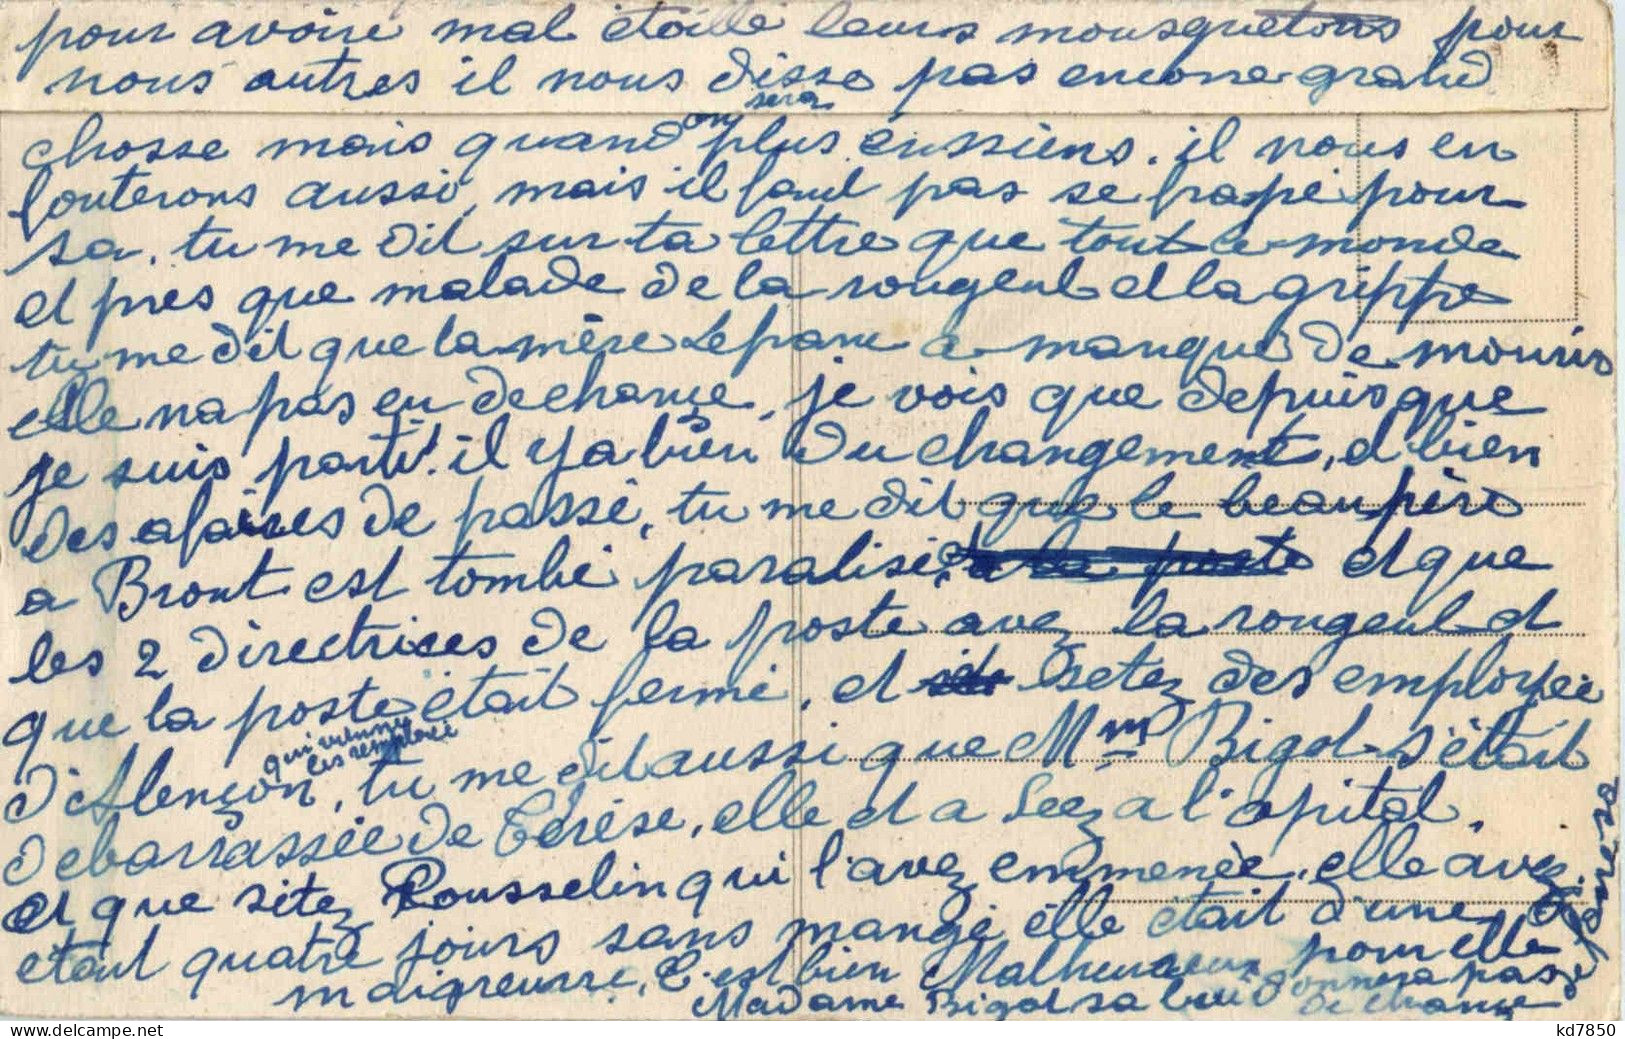 pour avoire mal étoillé leurs mousquetons pour
nous autres il nous disse pas encore grand
chosse mais quand on sera plus enssiens. il nous en
fouterons aussi, mais il faut pas se frapé pour
sa, tu me dit sur ta lettre que tout le monde
et pres que malade de la rougeul et la grippe
tu me dit que la mère Lepare a manqué de mourir
elle na pas eu de chance, je vois que depuis que
je suis parti il y a bien du changement, et bien
des afaires de passé, tu me dit que le beau père
a Bront est tombé paralisé, et que
les 2 directrices de la poste avez la rougeul et
que la poste était fermé, et setez des employée
d'Alençon qui venue les remplacé, tu me dit aussi que Mme Bigot s'était
debarrassée de Térèse, elle et a Seez a l'opital,
et que sitez Rousselin qui l'avez emmenée, elle avez
etait quatre jours sans mangé elle était d'une
maigreure, C'est bien Malheureux pour elle
Madame Bigot sa lui donnera pas de chance